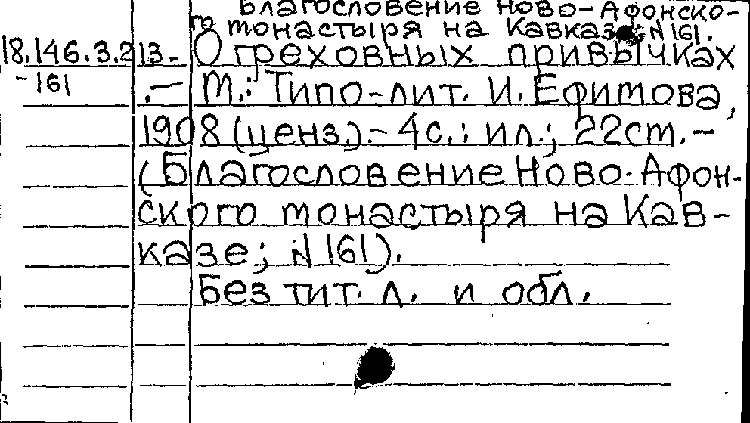 Благословение Ново-Афонско-
го монастыря на Кавказе; N161.
18.146.3.213- О греховных привычках
-161 .- М.: Типо-лит. И. Ефимова,
1908 (ценз.).- 4с.: ил.; 22см.-
(Благословение Ново-Афон-
ского монастыря на Кав-
казе; N161).
Без тит. л. и обл.